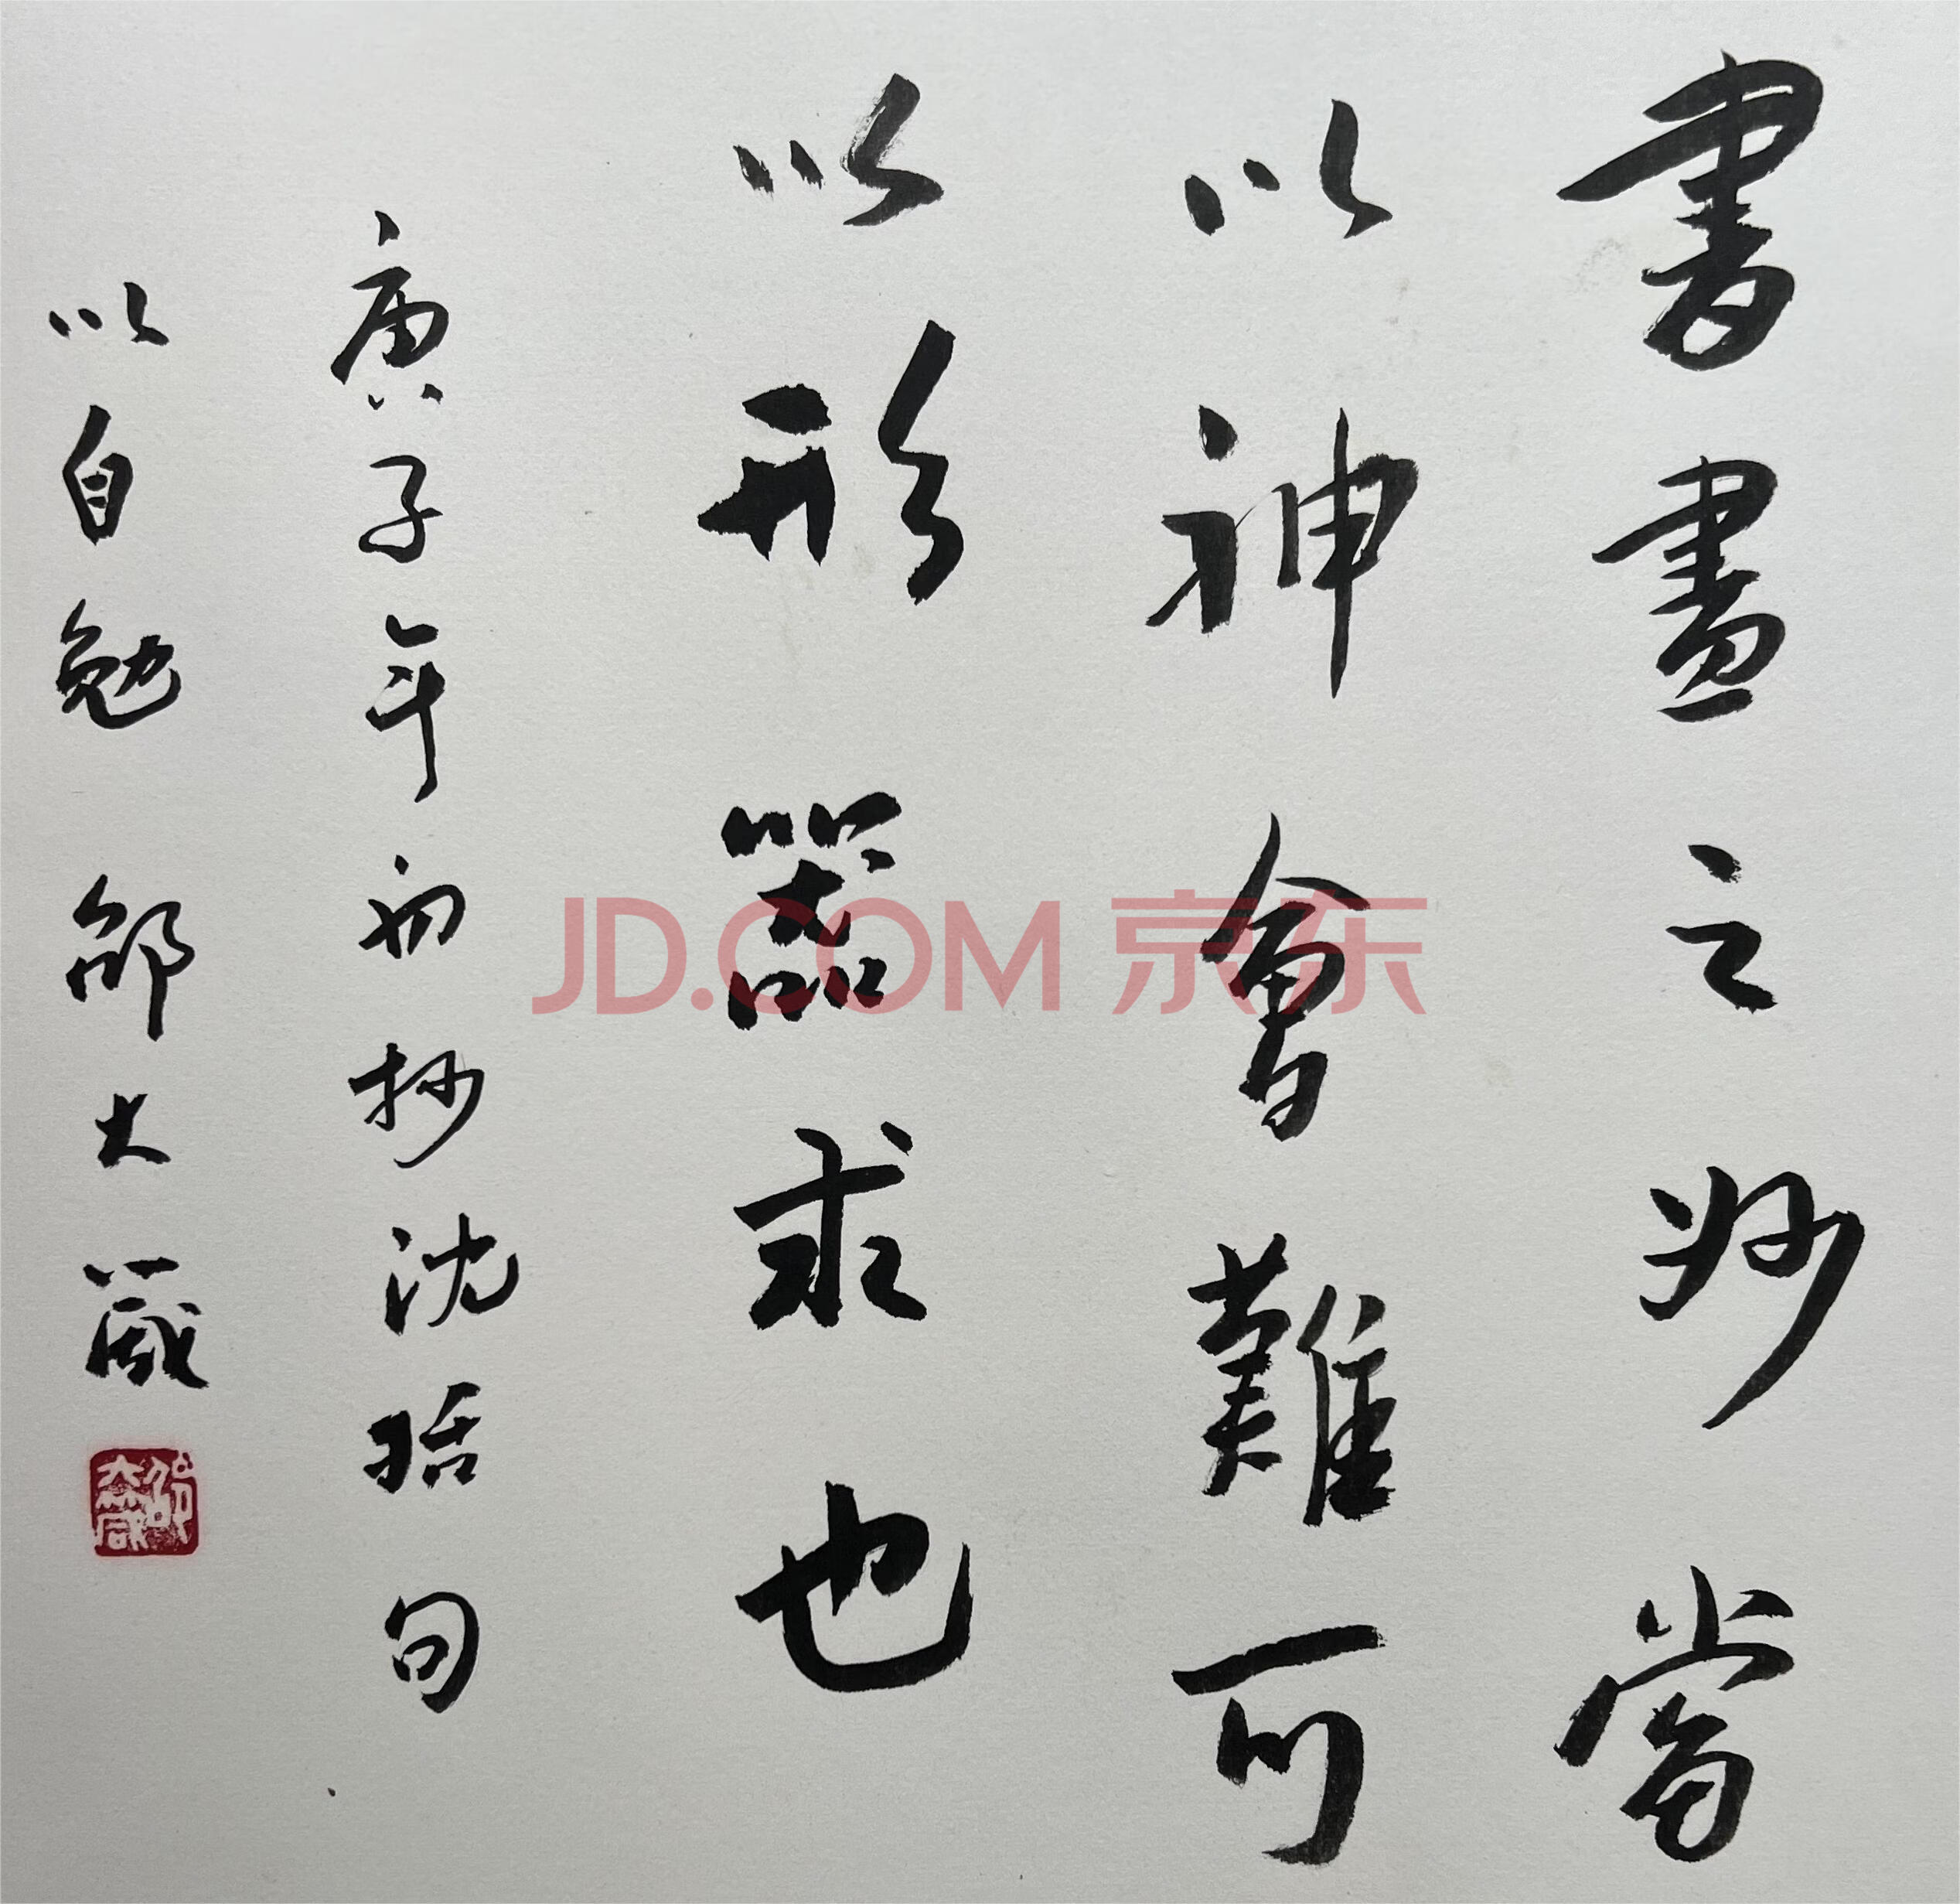 書畫之妙當
以神會難可
以形器求也
庚子年初抄沈括句
以自勉 邵大箴
邵大箴
JD.COM 京东